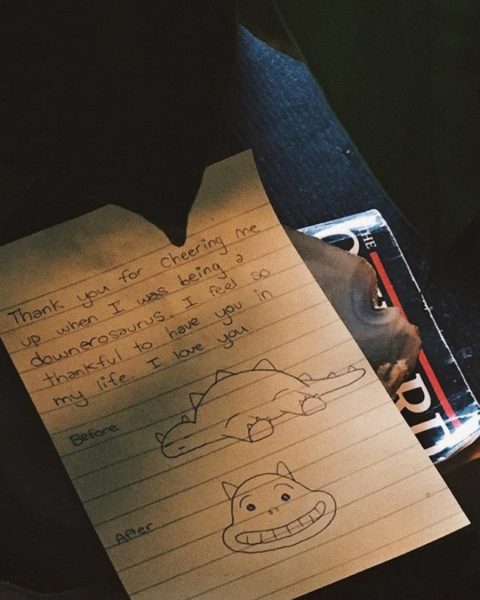 Thank you for Cheering me
up when I was being a
downerosaurus. I feel so
thankful to have you in
my life. I love you
Before
After
THE